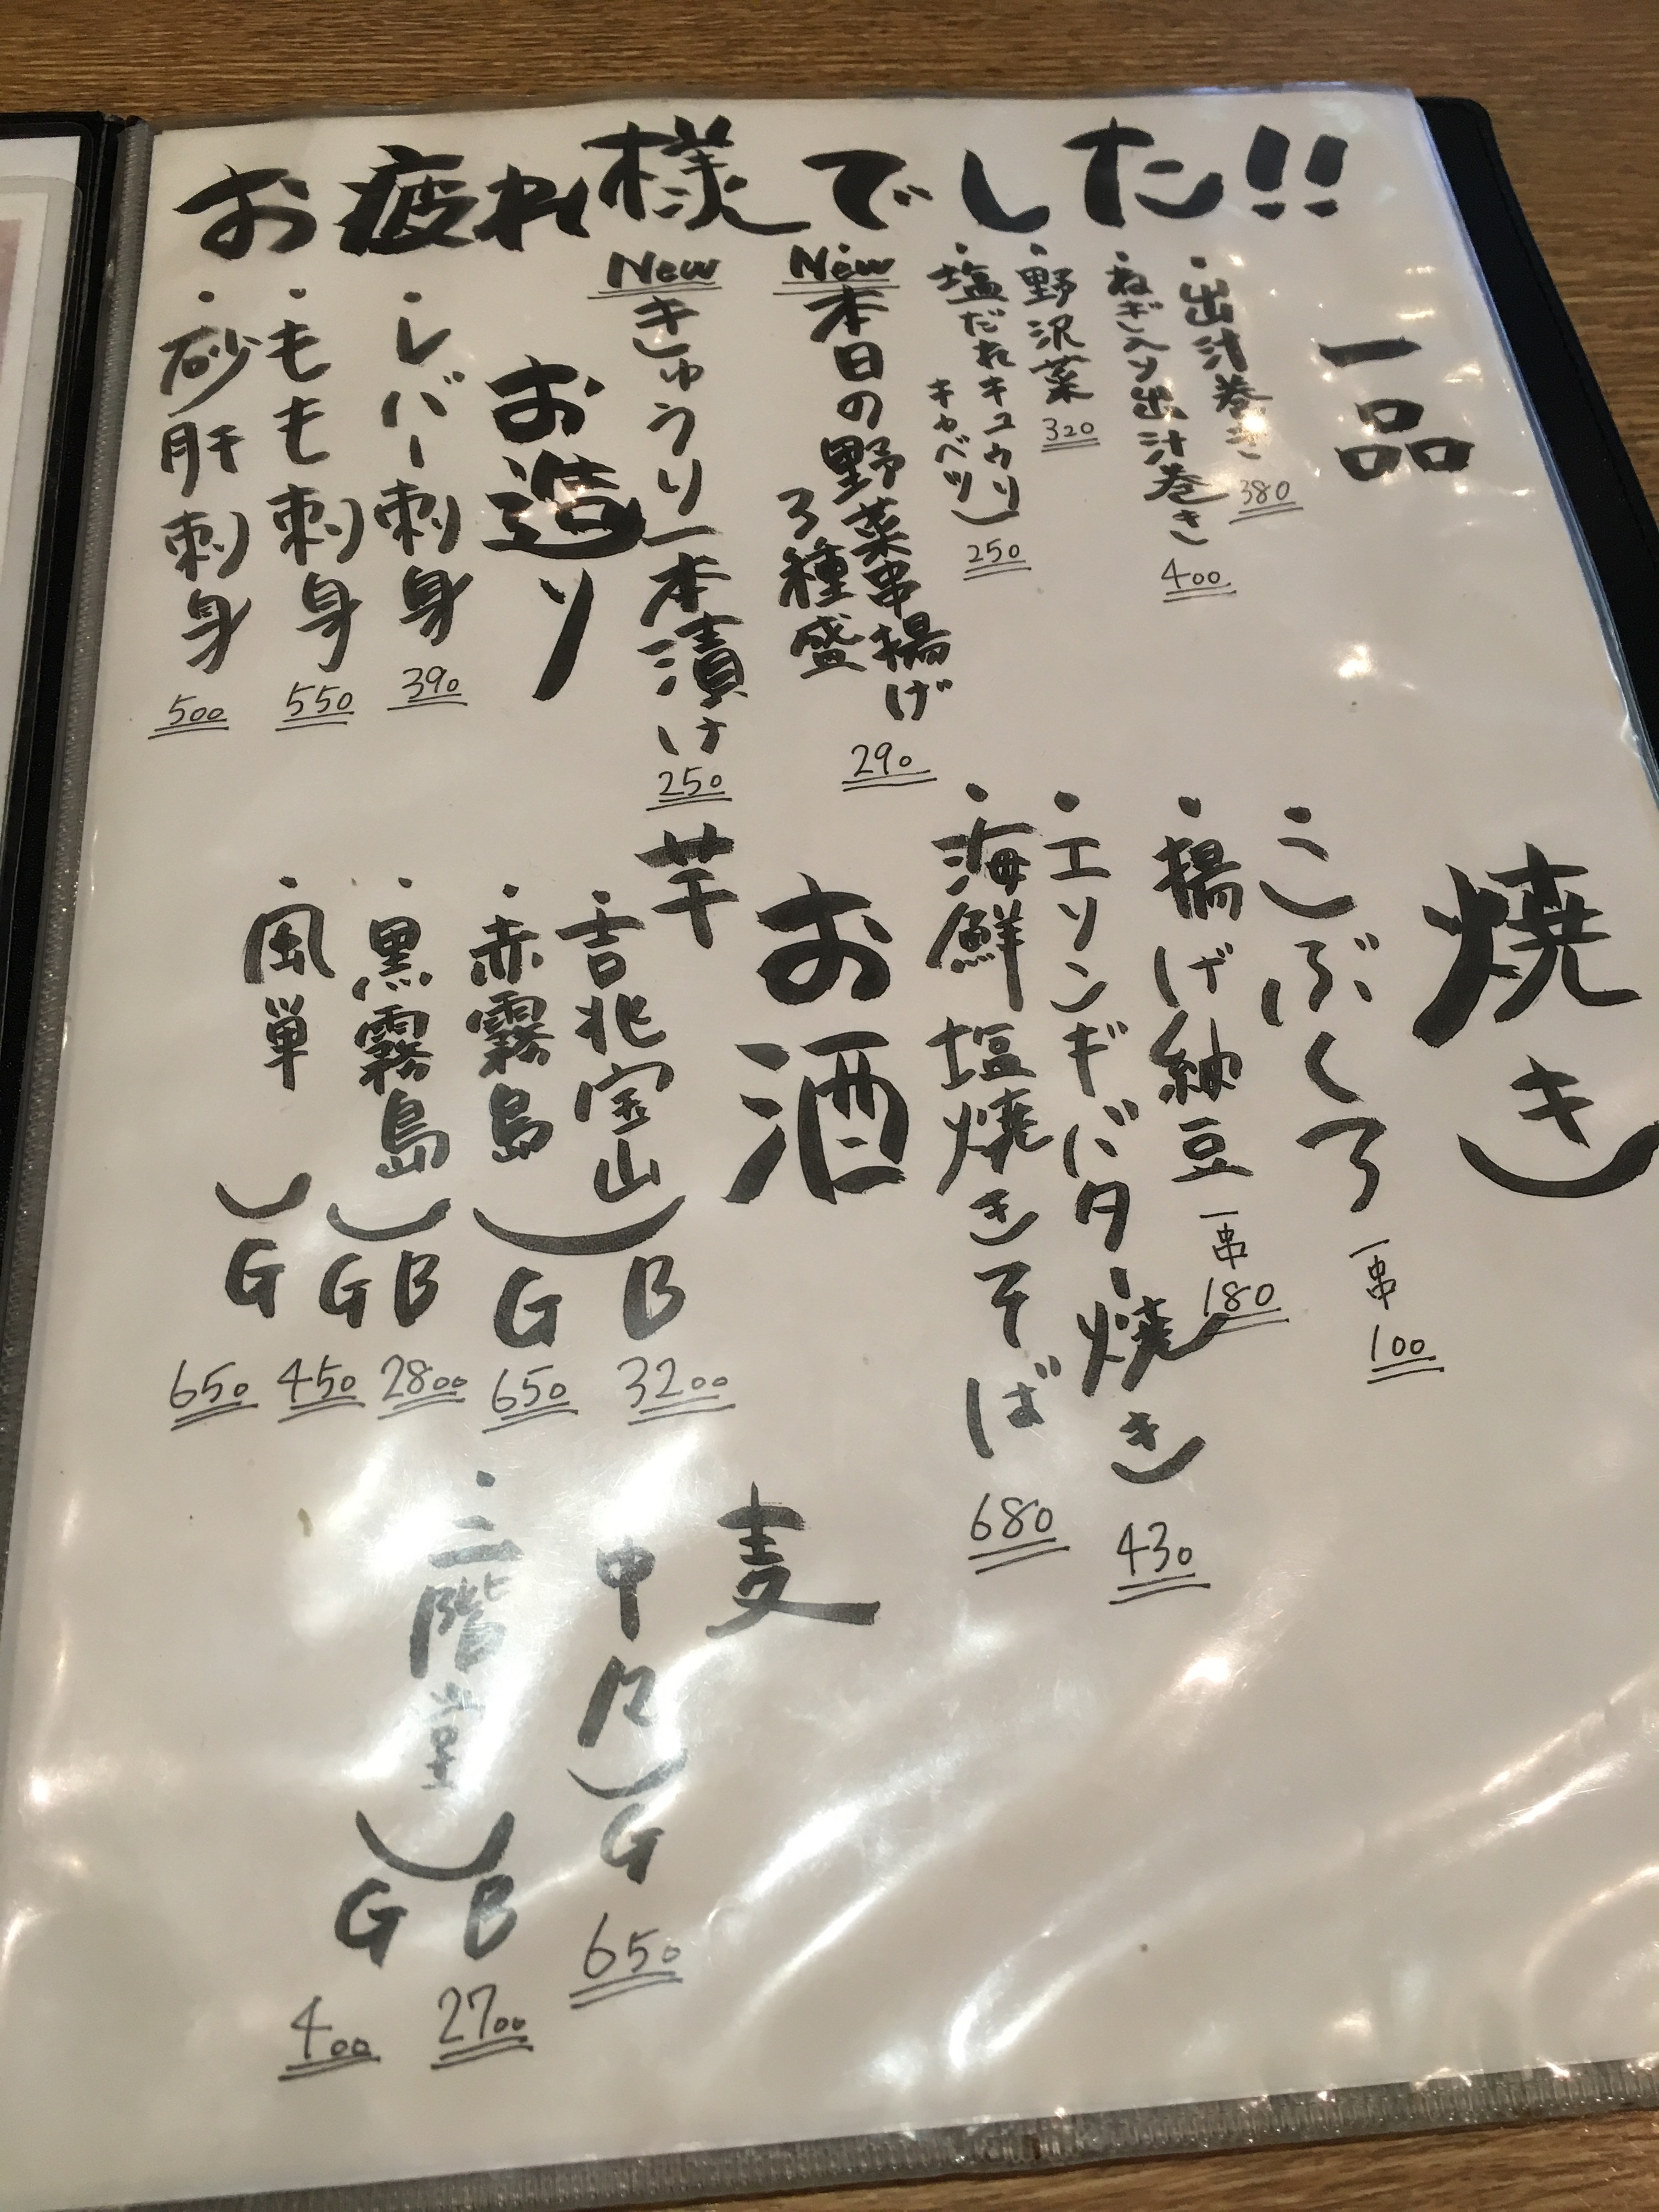 お疲れ様でした!!
一品
・出汁巻き 380
・ねぎ入り出汁巻き 400
・野沢菜 320
・塩だれキュウリ
キャベツ) 250
New 本日の野菜串揚げ
3種盛 290
New きゅうり一本漬け 250
お造り
・レバー刺身 390
・もも刺身 550
・砂肝刺身 500
焼き
こぶくろ 一串 100
・揚げ納豆 一串 180
・エリンギバター焼き 430
・海鮮塩焼きそば 680
お酒
芋
・吉兆宝山
・赤霧島
B 3200
G 650
・黒霧島
B 2800
G 450
・風
G 650
麦
中々 G 650
・二階堂
B 2700
G 400